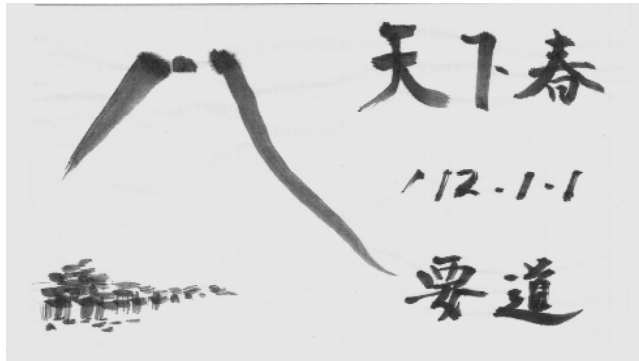 天下春
'12.1.1
要道